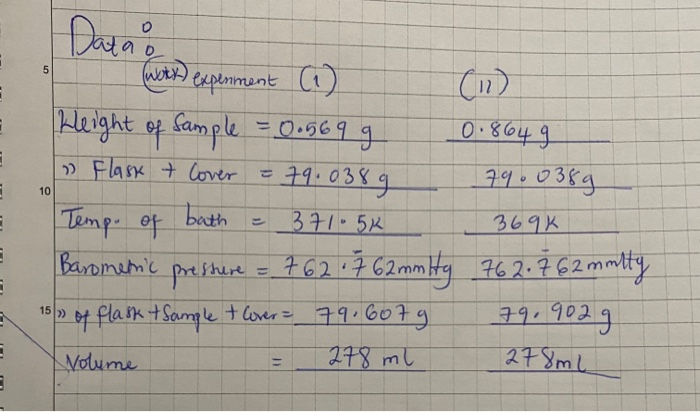 Data :
5
(work) experiment (1) (11)
Weight of Sample = 0.569 g 0.864 g
" Flask + Cover = 79.038 g 79.038g
10
Temp. of bath = 371.5K 369K
Barometric pressure = 762.762mmHg 762.762mmHg
15 " of flask + Sample + Cover = 79.607 g 79.902 g
Volume = 278 ml 278ml